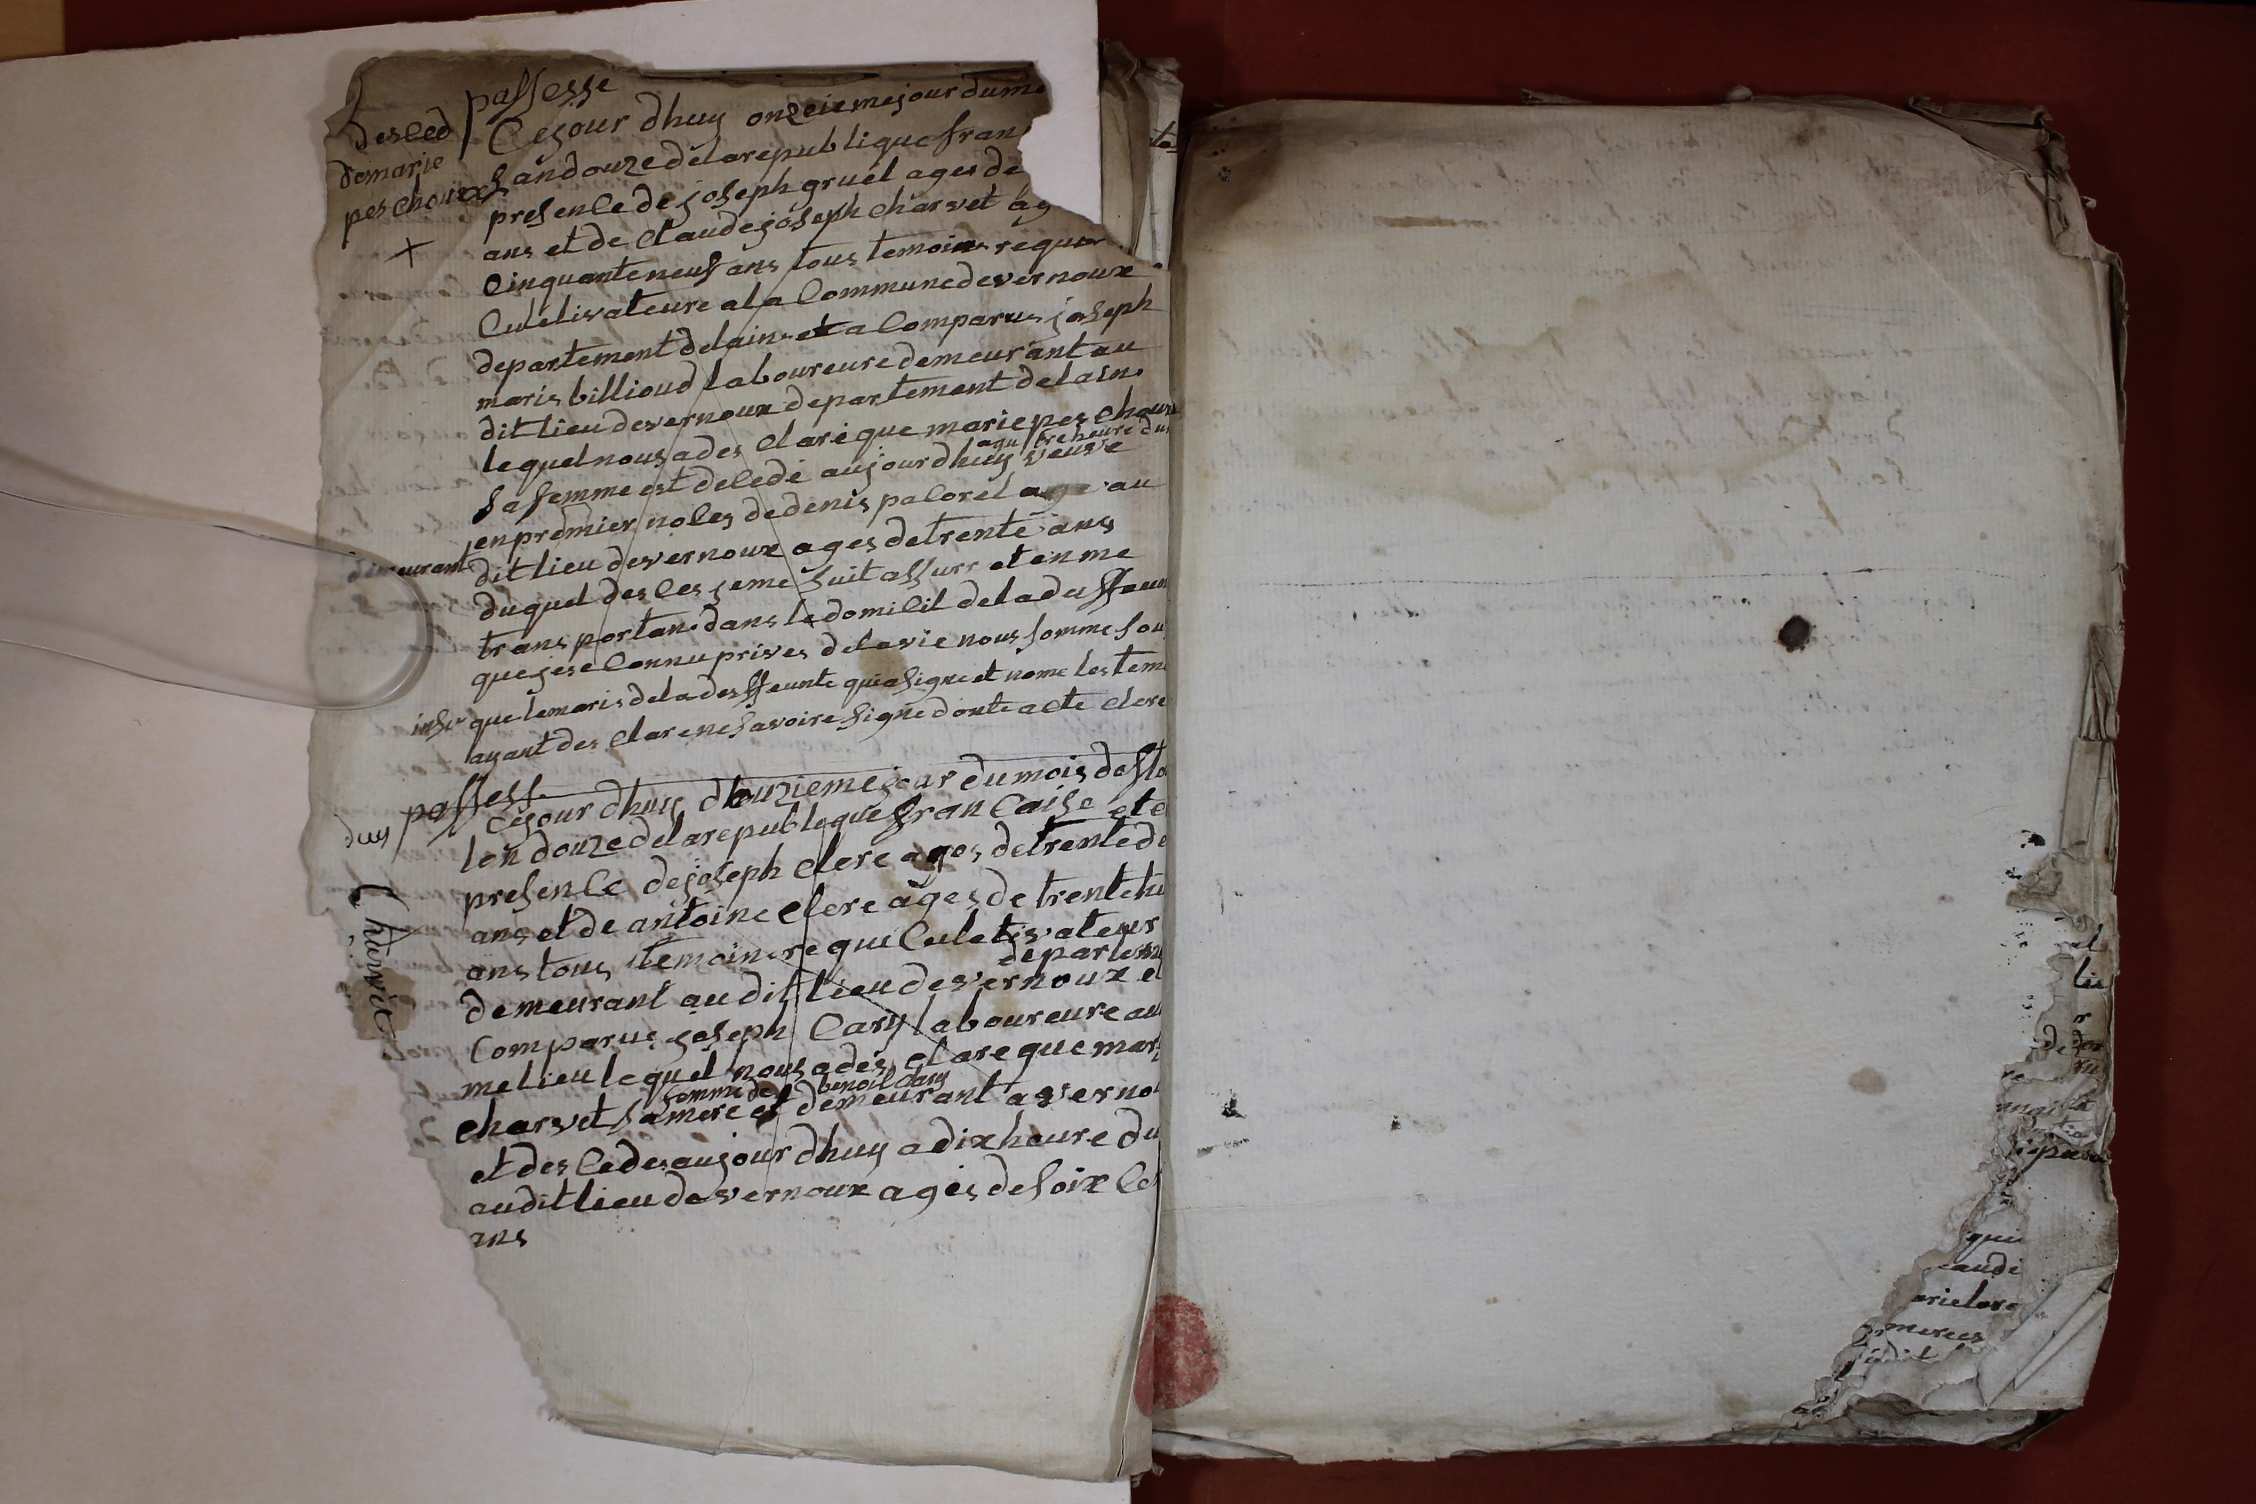 passesse
desced
de marie
peschoux
+
Ce jour dhuy onzeieme jour du mo
Landouze de la republique fran
presence de joseph gruel ages de
ans et de Claude joseph Charvet ag
Cinquante neuf ans tous temoins requr
Culetivateure a la Commune de vernoux
departement de lain et a Comparus joseph
maris billioud laboureure demeurant au
dit lieu de vernoux departement de lain
le quel nous a des clare que marie peschoux
sa femme est decede aujourdhuy veuve
en premier noces de denis pacoret age au
demeurant
dit lieu de vernoux ages de trente ans
du quel des ces je me suit assure et en me
trans portan dans le domicil de la deffeun
que je se Connu prives de la vie nous somme sou
insi que le maris de la desffeunte qui a signe et nome les tem
ayant des clare ne savoire signe donte acte clere
passess
Ce jour dhuy douzieme jour du mois de flo
duy
Lon douze de la republeque fran Caise et e
presence de joseph clere ages de trente de
Charvet
ans et de antoine clere ages de trente hu
ans tous temoins requi Culetivateur
departem
demeurant au dit lieu de vernoux et
Comparue joseph Cary laboureure au
me lieu le quel nous a des clare que mar
femme de benoit Cary
charvet sa mere et demeurant a verno
et des cedes aujour dhuy a dix heure du
au dit lieu de vernoux ages de soix Ce
ans
qui
audi